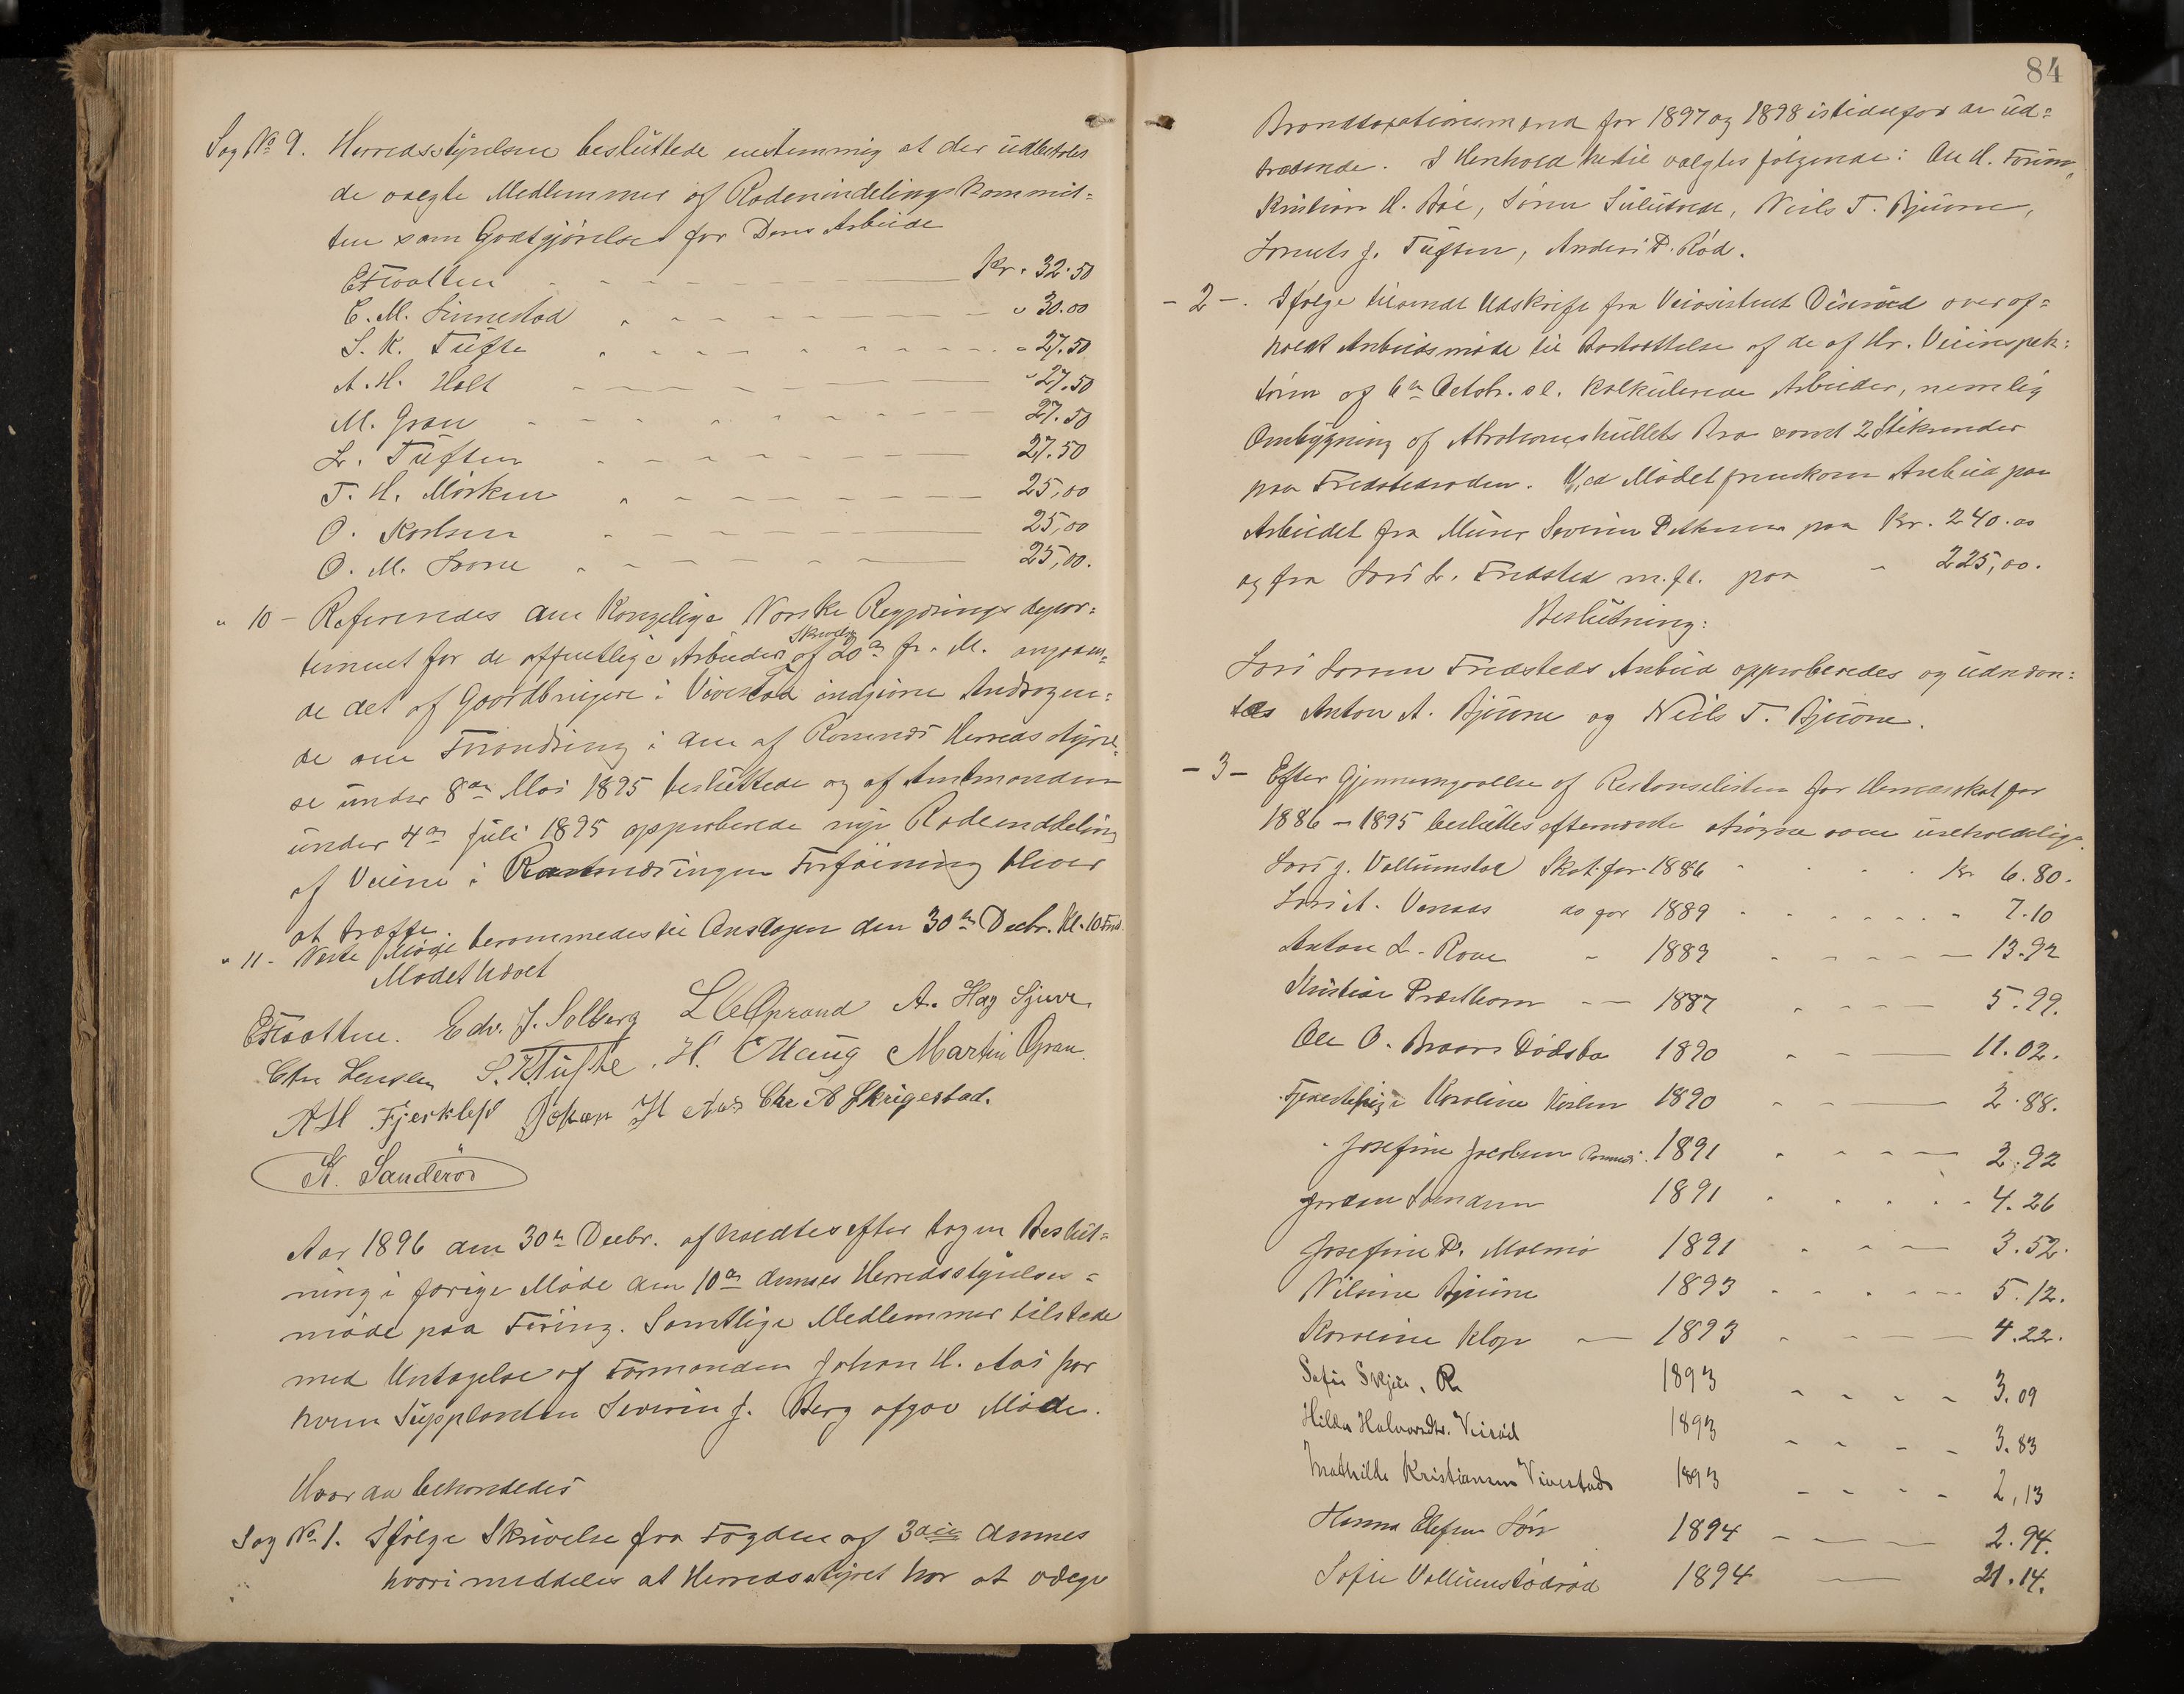 Sag No 9. Herredsstyrelsen besluttede enstemmig at der udbetales
de valgte Medlemmer af Rodeinddelingskommit=
teen som Godtgjörelse for Deres Arbeide
E Flaatten Kr. 32.50
C. M. Linnestad " 30.00
S. K. Tufte " 27.50
A. H. Holt " 27.50
M. Gran 27.50
L. Tuften 27.50
T. H. Mörken 25,00
O. Karlsen 25,00
O. M. 25,00.
" 10 - Refereredes den Kongelige Norske Regjerings depar=
tement for de offentlige Arbeider Skrivelse af 20de f. M. angaaen=
de det af Gaardbrugere i Vivestad indgivne Andragen=
de om Forandring i den af Ramnæs Herredsstyrel=
se under 8de Mai 1895 besluttede og af Amtmanden
under 4de Juli 1895 approberede nye Rodeinddeling
af Veiene i Ramnes ingen Forföining bliver
at træffe.
" 11 - Næste Möde berammedes til Onsdagen den 30te Decbr. Kl. 10 Fmd.
Mödet hævet
E Flaatten. Edv. J. Solberg A. Hag Sjuve
Chr Jensen S. K Tufte. H. Haug Martin Gran.
A H Fjerkleif Johan H Aas Chr A Skrigestad.
K. Sanderöd
Aar 1896 den 30te Decbr. afholdtes efter tagen Beslut=
ning i forige Möde den 10de dennes Herredsstyrelses=
möde paa Föring. Samtlige Medlemmer tilstede
med Untagelse af Formanden Johan H. Aas for
hvem Supplanten Severin J. Berg afgav Möde.
Hvor da behandledes
Sag No 1. Ifölge Skrivelse fra Fogden af 3die dennes
hvori meddeles at Herredsstyret har at vælge
84
Brandtaxationsmænd for 1897 og 1898 istedenfor de ud=
trædende. I Henhold hertil valgtes fölgende: Ole H.
Kristian H. Böe, Sören Sulutvedt, Niels T. Bjuone,
J. Tuften, Anders P. Röd.
- 2 -. Ifölge tilsendt Udskrift fra Veiassistent over af=
holdt Anbudsmöde til Bortsættelse af de af Hr. Veiinspek=
tören af 6te Octobr. d. l. kalkulerede Arbeider, nemlig
Ombygning af Abrahamshullets Bro samt 2 Stikrender
paa Fredstedroden. Ved Mödet fremkom Anbud paa
Arbeidet fra Murer Severin Pettersen paa Kr. 240.00
og fra Lars L. Fredsted m. fl. paa " 225,00.
Beslutning:
Lars Larsen Fredsteds Anbud approberedes og udnævn=
tes Anton A. Bjuone og Niels T. Bjuone.
- 3 - Efter Gjennemgaaelse af Restanselisten for Herredsskat for
1886 - 1895 besluttes efternævnte afskrevne som uerholdelige.
Lars J. Vollumstad Skat for 1886 Kr 6.80.
Lars A. Venaas do for 1889 " 7.10
Anton L. Rove " 1889 13.92
Kristian Præsthorn 1887 5.99.
Ole O. Braars Dödsbo 1890 11.02.
Karoline 1890 2.88.
" Josefine Jacobsen Ramnes. 1891 2.92
Gordon Samdum 1891 4.26
Josefine P. Malmö 1891 3.52.
Nilsine Bjuone 1893 5.12.
Karoline Klop 1893 4.22.
Sofie Skjæ, R. 1893 3.09
Hilda Halvorsdtr. Veiröd 1893 3.83
Mathilde Kristiansen Vivestad 1893 2,13
Hanna Elefsen 1894 2.94.
Sofie Vollumstödröd 1894 21.14.